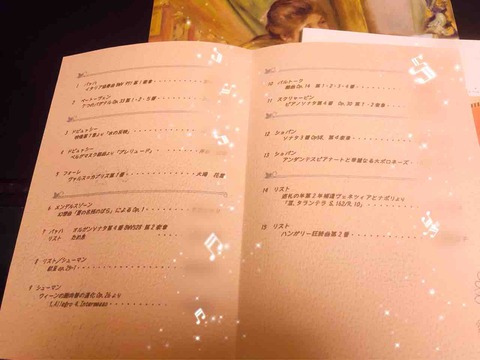 1 バッハ
イタリア協奏曲 BWV 971 第1楽章
2 ベートーヴェン
7つのバガテル Op.33 第1・2・5番
3 ドビュッシー
映像第1集より「水の反映」
4 ドビュッシー
ベルガマスク組曲より「プレリュード」
5 フォーレ
ヴァルス=カプリス第1番
6 メンデルスゾーン
幻想曲「夏の名残のばら」による Op.
7 バッハ オルガンソナタ第4番 BWV528 第2楽章
リスト
8 リスト/シューマン
献呈 op.25-1
9 シューマン
ウィーンの謝肉祭の道化 Op.26 より
1,Allegro 4,Intermezzo
10 バルトーク
組曲 Op.14 第1・2・3・4番
11 スクリャービン
ピアノソナタ第4番 Op.30 第1・2楽章
12 ショパン
ソナタ3番 Op58, 第4楽章
13 ショパン
アンダンテスピアナートと華麗なる大ポロネーズ
14 リスト
巡礼の年第2年補遺ヴェネツィアとナポリより
「Ⅲ, タランテラ S,162/R,10」
15 リスト
ハンガリー狂詩曲第2番